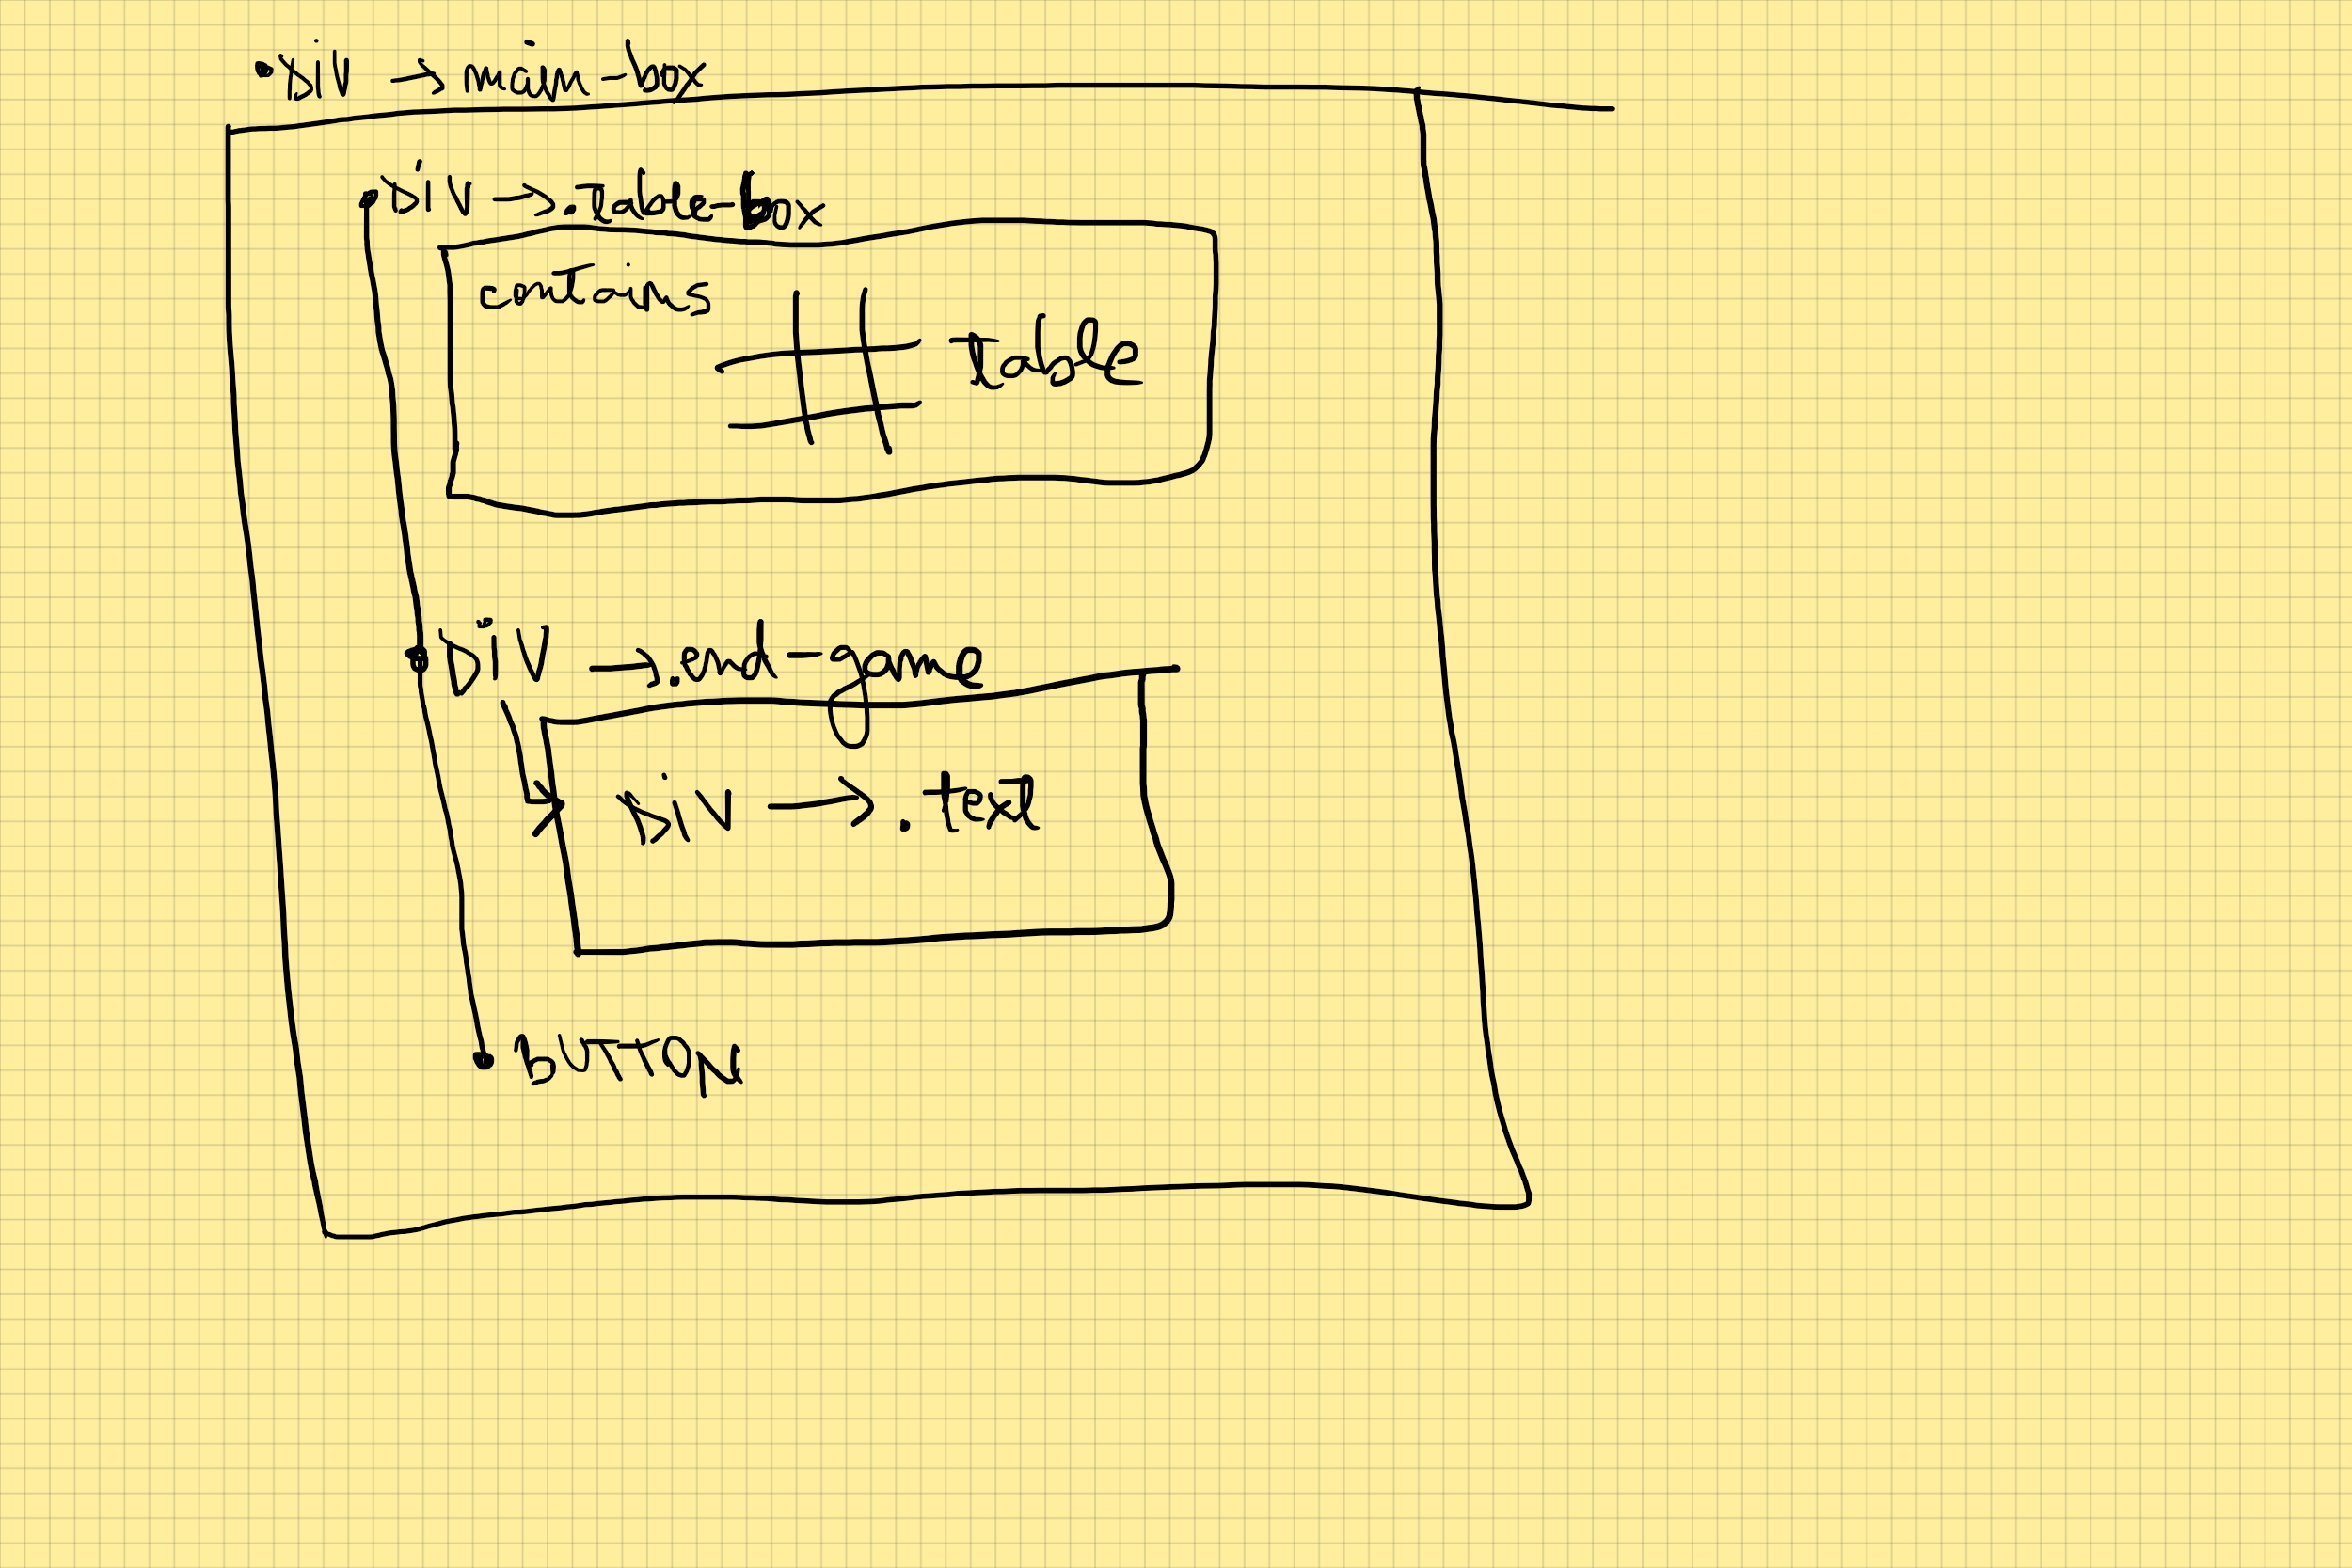 • Div → main-box
Div → .Table-box
contains
# Table
Div → .end-game
Div → .text
BUTTON